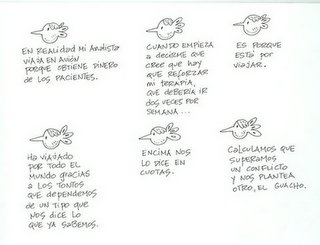 EN REALIDAD MI ANALISTA
VIAJA EN AVIÓN
PORQUE OBTIENE DINERO
DE LOS PACIENTES.
CUANDO EMPIEZA
a DECIRME QUE
CREE QUE HAY
QUE REFORZAR
MI TERAPIA,
QUE DEBERÍA IR
DOS VECES POR
SEMANA...
ES PORQUE
ESTÁ POR
VIAJAR.
HA VIAJADO
POR TODO EL
MUNDO GRACIAS
A LOS TONTOS
QUE DEPENDEMOS
DE UN TIPO QUE
NOS DICE LO
QUE YA SABEMOS.
ENCIMA NOS
LO DICE EN
CUOTAS.
CALCULAMOS QUE
SUPERAMOS
UN CONFLICTO
Y NOS PLANTEA
OTRO, EL GUACHO.